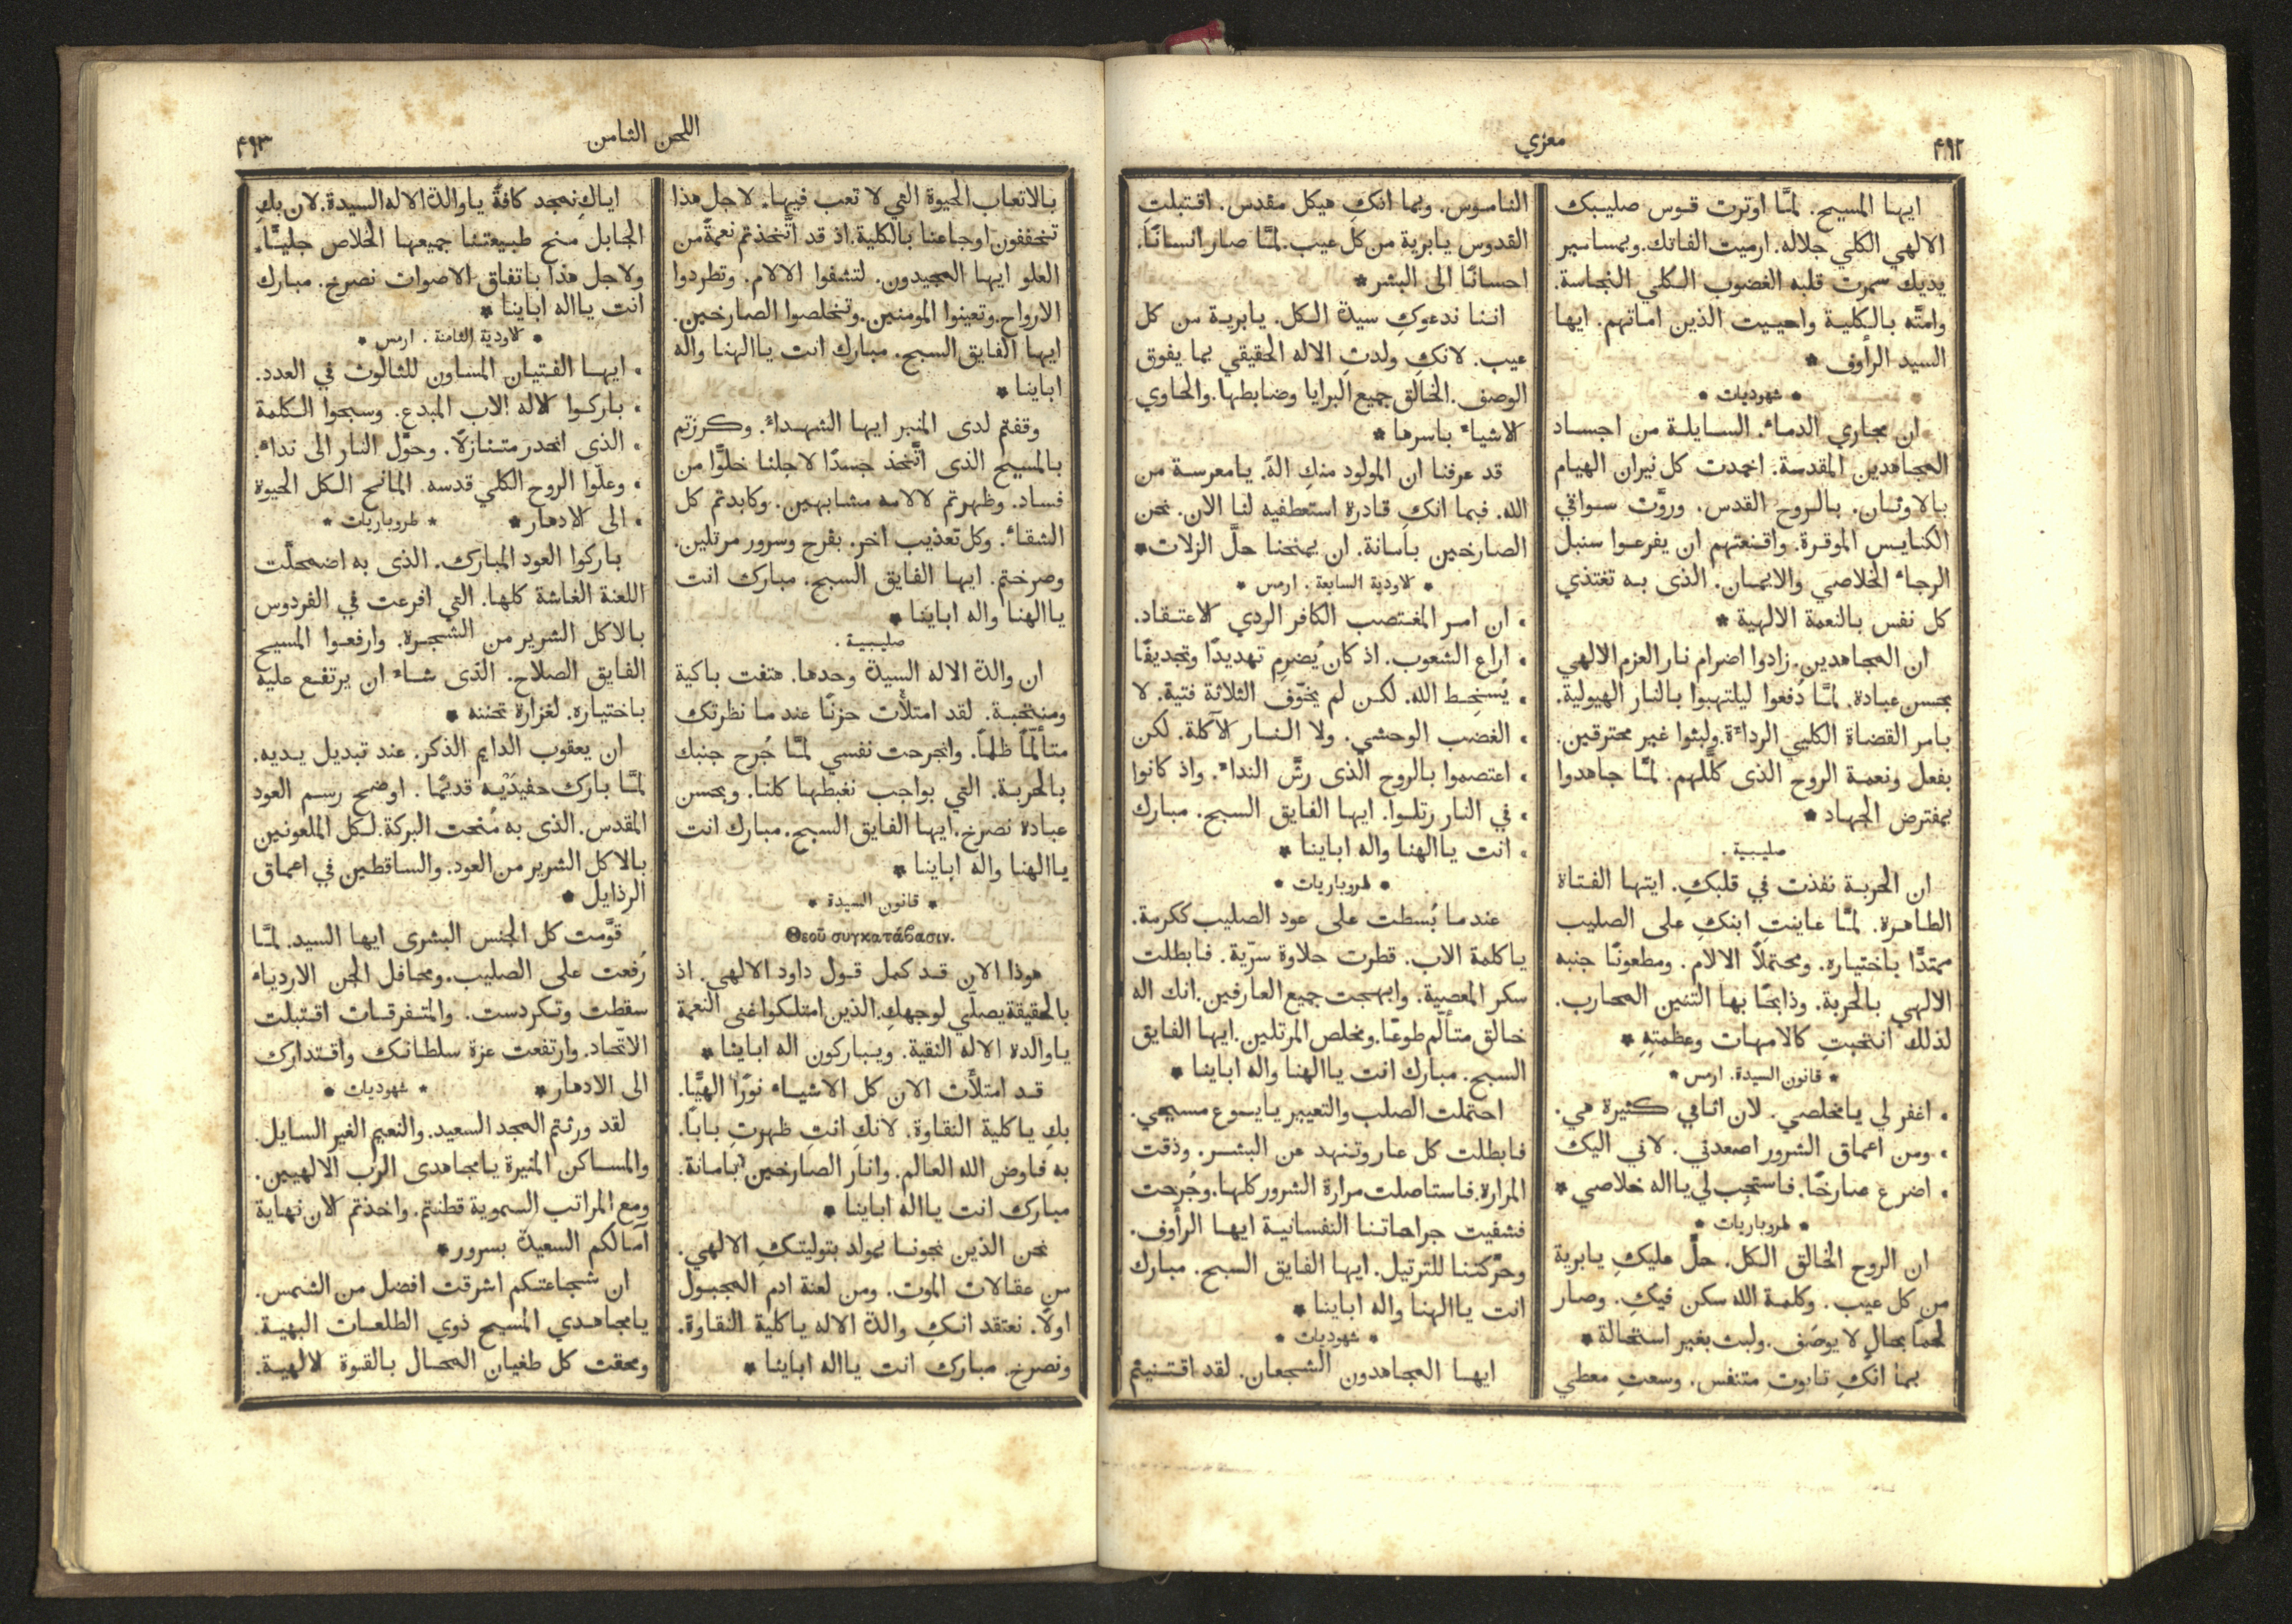 ٤٩٢
معزي
ايها المسيح. لمَّا اوترت قوس صليبك
الالهي الكلي جلاله. ارميت الفاتك. وبمسامير
يديك سمرت قلبه الغضوب الكلي النجاسة.
وامتَّه بالكلية واحييت الذين اماتهم. ايها
السيد الرأوف *
* شهوديات *
ان مجاري الدماء. السايلة من اجساد
المجاهدين المقدسة. اخمدت كل نيران الهيام
بالاوثان. بالروح القدس. وروَّت سواقي
الكنايس الموقرة. واقنعتهم ان يفرعوا سنبل
الرجاء الخلاصي والايمان. الذى به تغتذي
كل نفس بالنعمة الالهية *
ان المجاهدين. زادوا اضرام نار العزم الالهي
بحسن عبادة. لمَّا دُفعوا ليلتهبوا بالنار الهيولية.
بامر القضاة الكليي الرداءة. ولبثوا غير محترقين.
بفعل ونعمة الروح الذى كلَّلهم. لمَّا جاهدوا
بمفترض الجهاد *
صليبية .
ان الحربة نفذت في قلبكِ. ايتها الفتاة
الطاهرة. لمَّا عاينتِ ابنكِ على الصليب
ممتدًّا باختياره. ومحتملًا الالام. ومطعونًا جنبه
الالهي بالحربة. وذابحًا بها التنين المحارب.
لذلك انتحبتِ كالامهات وعظمتهِ *
* قانون السيدة. ارمس *
• اغفر لي يا مخلصي. لان اثامي كثيرة هي.
• ومن اعماق الشرور اصعدني. لاني اليك
• اضرع صارخًا. فاستجب لي يا اله خلاصي *
* طروباريات *
ان الروح الخالق الكل. حلَّ عليكِ يا برية
من كل عيب. وكلمة الله سكن فيكِ. وصار
لحمًا بحالٍ لا يوصَف. ولبث بغير استحالة *
بما انكِ تابوت متنفس. وسعتِ معطي
الناموس. وبما انكِ هيكل مقدس. اقتبلتِ
القدوس يا برية من كل عيب. لمَّا صار انسانًا.
احسانًا الى البشر *
اننا ندعوكِ سيدة الكل. يا برية من كل
عيب. لانكِ ولدتِ الاله الحقيقي بما يفوق
الوصف. الخالق جميع البرايا وضابطها. والحاوي
الاشياء باسرها *
قد عرفنا ان المولود منكِ الهٌ. يا معرسة من
الله. فبما انكِ قادرة استعطفيه لنا الان. نحن
الصارخين بامانة. ان يمنحنا حلَّ الزلات *
* الاودية السابعة . ارمس *
• ان امر المغتصب الكافر الردي الاعتقاد.
• اراع الشعوب. اذ كان يُضرِم تهديدًا وتجديفًا
• يُسخِط الله. لكن لم يخوّف الثلاثة فتية. لا
• الغضب الوحشي. ولا النار الآكلة. لكن
• اعتصموا بالروح الذى رشَّ النداء. واذ كانوا
• في النار رتلوا. ايها الفايق السبح. مبارك
• انت يا الهنا واله اباينا *
* طروباريات *
عندما بُسطت على عود الصليب ككرمة.
يا كلمة الاب. قطرت حلاوة سرّية. فابطلت
سكر المعصية. وابهجت جميع العارفين. انك اله
خالق متألّم طوعًا. ومخلص المرتلين. ايها الفايق
السبح. مبارك انت يا الهنا واله اباينا *
احتملت الصلب والتعيير يا يسوع مسيحي.
فابطلت كل عار وتنهد عن البشر. وذقت
المرارة. فاستاصلت مرارة الشرور كلها. وجُرحت
فشفيت جراحاتنا النفسانية ايها الرأوف.
وحرَّكتنا للترتيل. ايها الفايق السبح. مبارك
انت يا الهنا واله اباينا *
* شهوديات *
ايها المجاهدون الشجعان. لقد اقتنيتم
اللحن الثامن
٤٩٣
بالاتعاب الحيوة التي لا تعب فيها. لاجل هذا
تخففون اوجاعنا بالكلية. اذ قد اتَّخذتم نعمةً من
العلو ايها المجيدون. لتشفوا الالام. وتطردوا
الارواح. وتعينوا المومنين. وتخلصوا الصارخين.
ايها الفايق السبح. مبارك انت يا الهنا واله
اباينا *
وقفتم لدى المنبر ايها الشهداء. وكرزتم
بالمسيح الذى اتَّخذ جسدًا لاجلنا خلوًا من
فساد. وظهرتم لالامه مشابهين. وكابدتم كل
الشقاء. وكل تعذيب اخر. بفرح وسرور مرتلين.
وصرختم. ايها الفايق السبح. مبارك انت
يا الهنا واله اباينا *
صليبية .
ان والدة الاله السيدة وحدها. هتفت باكية
ومنتحبة. لقد امتلأت حزنًا عند ما نظرتك
متألّمًا ظلمًا. وانجرحت نفسي لمَّا جُرح جنبك
بالحربة. التي بواجب نغبطها كلنا. وبحسن
عبادة نصرخ. ايها الفايق السبح. مبارك انت
يا الهنا واله اباينا *
* قانون السيدة *
Θεοῦ συγκατάβασιν.
هوذا الان قد كمل قول داود الالهي. اذ
بالحقيقة يصلّي لوجهكِ. الذين امتلكوا غنى النعمة
يا والدة الاله النقية. ويباركون اله اباينا *
قد امتلأت الان كل الاشياء نورًا الهيًّا.
بكِ يا كلية النقاوة. لانكِ انت ظهرتِ بابًا.
به فاوض الله العالم. وانار الصارخين بامانة.
مبارك انت يا اله اباينا *
نحن الذين نجونا بمولد بتوليتكِ الالهي.
من عقالات الموت. ومن لعنة ادم المجبول
اولًا. نعتقد انكِ والدة الاله يا كلية النقاوة.
ونصرخ. مبارك انت يا اله اباينا *
اياكِ نمجد كافةً يا والدة الاله السيدة. لان بكِ
الجابل منح طبيعتنا جميعها الخلاص جليًّا.
ولاجل هذا باتفاق الاصوات نصرخ. مبارك
انت يا اله اباينا *
* الاودية الثامنة . ارمس *
• ايها الفتيان المساون للثالوث في العدد.
• باركوا الاله الاب المبدع. وسبحوا الكلمة
• الذى انحدر متنازلًا. وحوَّل النار الى نداء.
• وعلّوا الروح الكلي قدسه. المانح الكل الحيوة
• الى الادهار * * طروباريات *
باركوا العود المبارك. الذى به اضمحلَّت
اللعنة الغاشة كلها. التي افرعت في الفردوس
بالاكل الشرير من الشجرة. وارفعوا المسيح
الفايق الصلاح. الذى شاء ان يرتفع عليه
باختياره. لغزارة تحننه *
ان يعقوب الدايم الذكر. عند تبديل يديه.
لمَّا بارك حفيدَيْه قديمًا . اوضح رسم العود
المقدس. الذى به مُنحت البركة. لكل الملعونين
بالاكل الشرير من العود. والساقطين في اعماق
الرذايل *
قوَّمت كل الجنس البشرى ايها السيد. لمَّا
رُفعت على الصليب. ومحافل الجن الاردياء
سقطت وتكردست. والمتفرقات اقتبلت
الاتّحاد. وارتفعت عزة سلطانك واقتدارك
الى الادهار * * شهوديات *
لقد ورثتم المجد السعيد. والنعيم الغير السايل.
والمساكن المنيرة يا مجاهدى الرب الالهيين.
ومع المراتب السموية قطنتم. واخذتم الان نهاية
آمالكم السعيدة بسرور *
ان شجاعتكم اشرقت افضل من الشمس.
يا مجاهدي المسيح ذوي الطلعات البهية.
ومحقت كل طغيان المحال بالقوة الالهية.